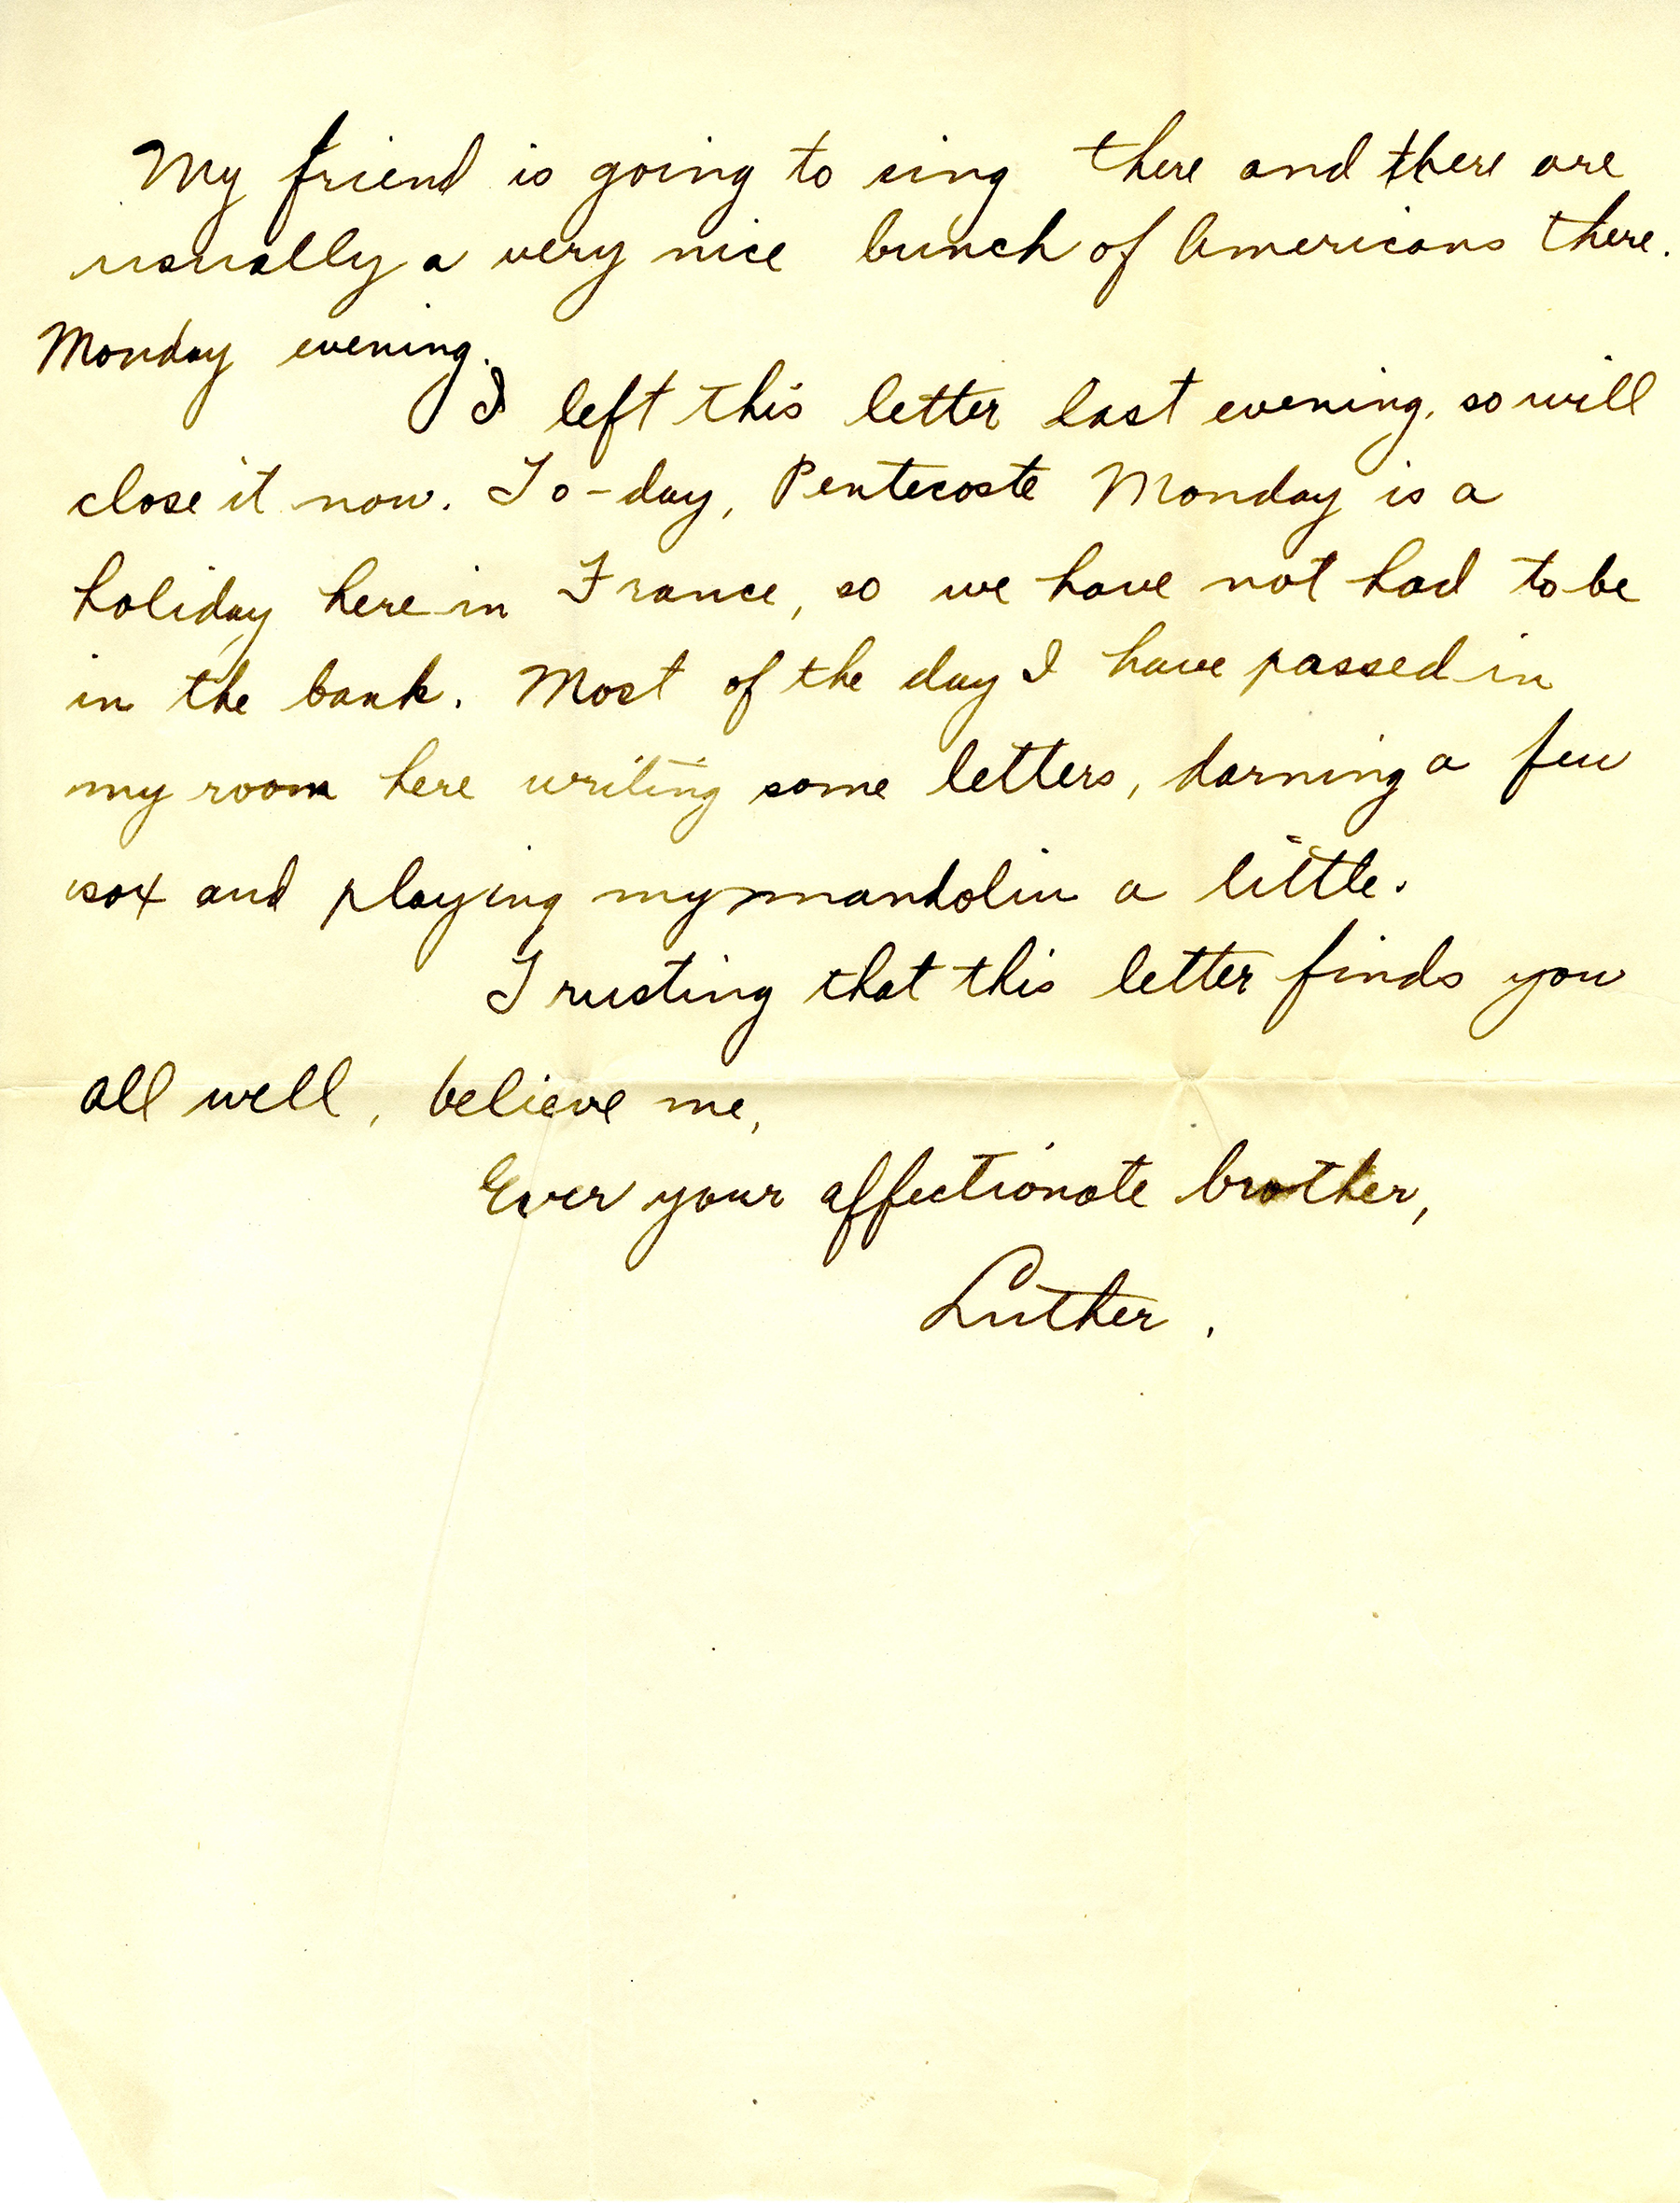 My friend is going to sing there and there are
usually a very nice bunch of Americans there.
Monday evening.
I left this letter last evening, so will
close it now. To-day, Pentecoste Monday is a
holiday here in France, so we have not had to be
in the bank. Most of the day I have passed in
my room here writing some letters, darning a few
sox and playing my mandolin a little.
Trusting that this letter finds you
all well, believe me,
Ever your affectionate brother,
Luther.